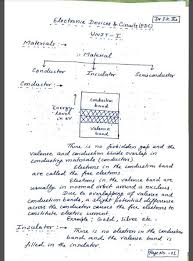 Electronic Devices & Circuits (EDC)
UNIT - I
Materials: →
Material
Conductor Insulator Semiconductor
Conductor: →
Conduction
band
Energy
level
in eV
Valence
band
There is no forbidden gap and the
valence and conduction bands overlap in
conducting materials (conductors).
Electrons in the conduction band are
are called the free electrons.
Electrons in the valence band are
usually in normal orbit around a nucleus.
Due to overlapping of valence and
conduction bands, a slight potential difference
across the conductor causes the free electrons to
constitute electric current.
Example: Gold, Silver etc.
Insulator: →
There is no electron in the conduction
band and, the valence band is
filled in the insulator.
Page No. - 01